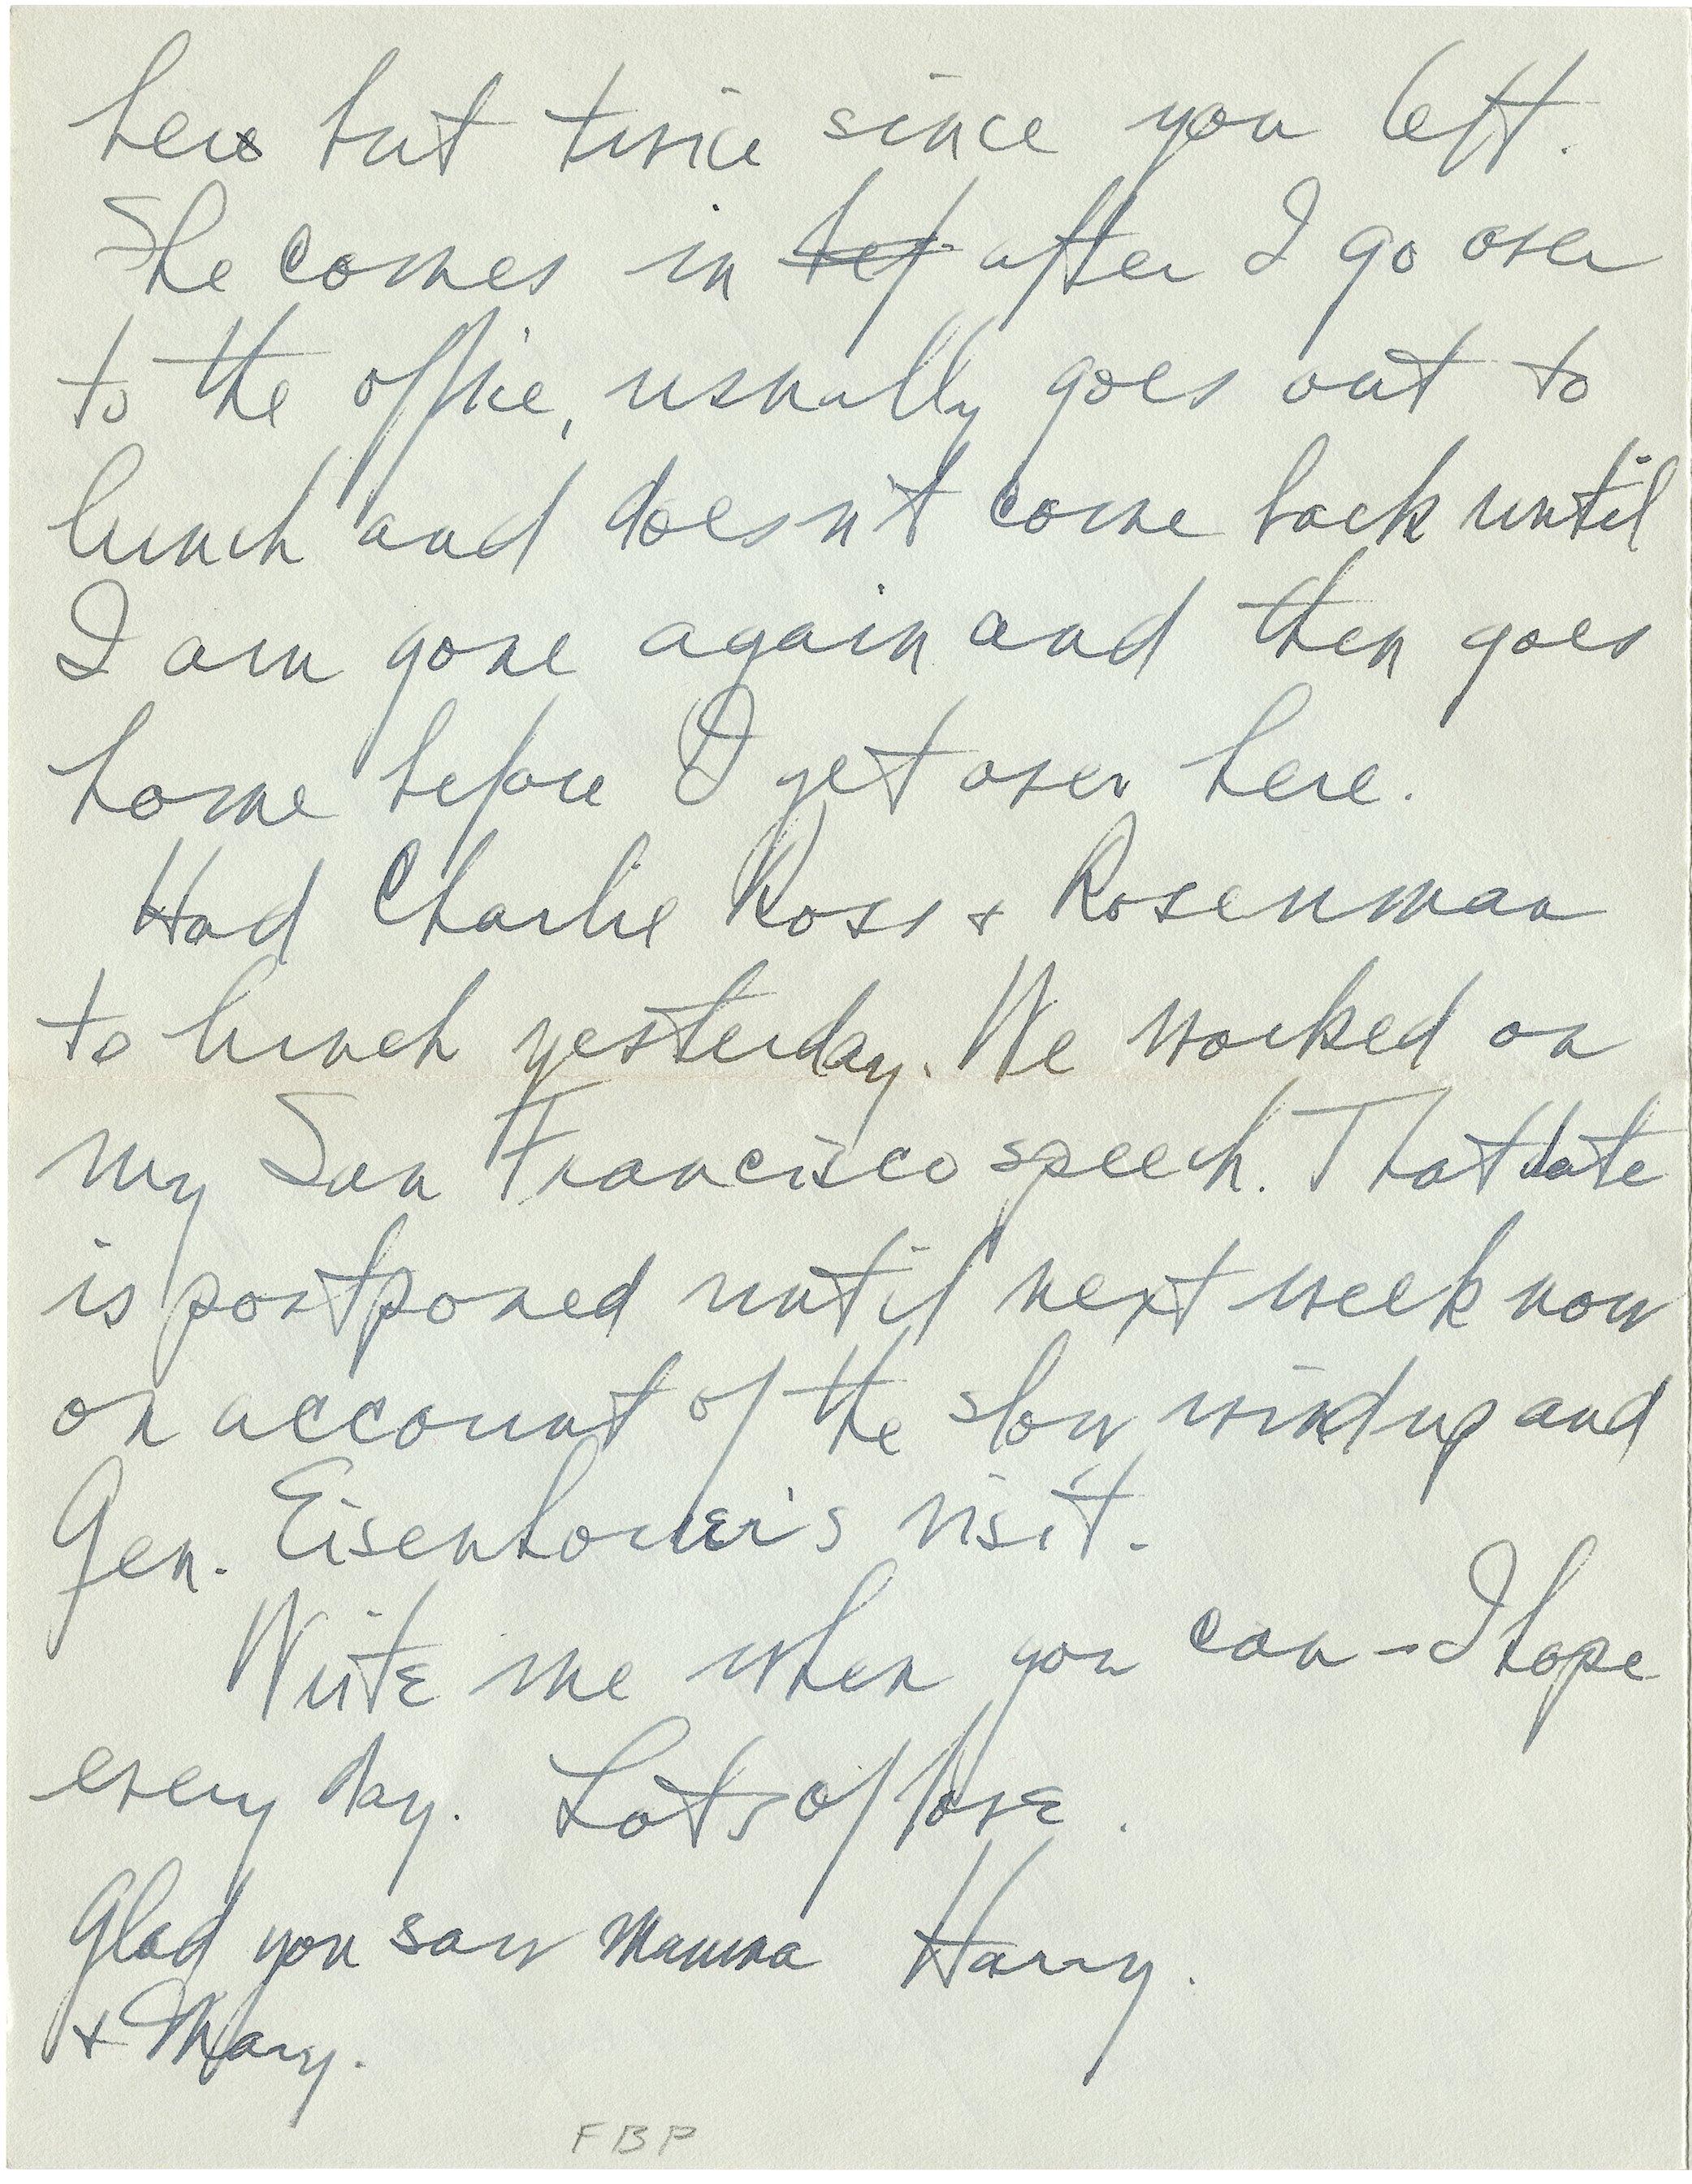 here but twice since you left.
She comes in bef after I go over
to the office, usually goes out to
lunch and doesn't come back until
I am gone again and then goes
home before I get over here.
Had Charlie Ross + Rosenman
to lunch yesterday. We worked on
my San Francisco speech. That date
is postponed until next week now
on account of the slow windup and
Gen. Eisenhower's visit.
Write me when you can - I hope
every day. Lots of love.
Glad you saw Mamma Harry.
+ Mary.
FBP